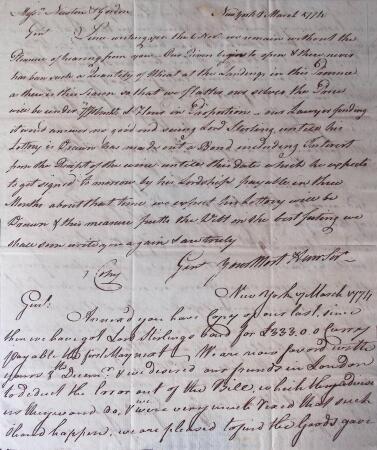 Messrs. Newton & Gordon New York 8 March 1774
Gent Since writing you the 6 Nov. we remain without the
Pleasure of hearing from you. Our Rivers begin to open & there never
has been such a Quantity of Wheat at the Landings in this Province
as there is this Season so that we flatter our selves the Price
will be under & Flour in Proportion our Lawyer finding
it would answer no good end sueing Lord Sterling, untill his
Lottery is Drawn has made out a Bond including Interest
from the Receipt of the wines untill this date which he expects
to get signed to morrow by his Lordship payable in three
Months about that time we expect his Lottery will be
Drawn & this measure puts the Debt on the best footing we
shall soon write you again & are truly
Gent Your Most Hum Ser
Copy
New York March 1774
Gent.
Annexed you have Copy of our last, since
then we have got Lord Sterlings bond for £333.0.0 Curry
payable the first May next. We are now favored with
yours Decemr. & we desired our friends in London
to deduct the Error out of the Bill, which they advise
us they would do, & were very much vexed that such
should happen, we are pleased to find the Goods gave